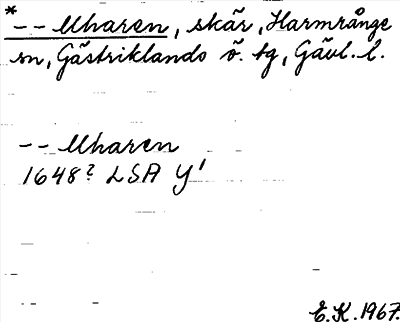 * -- Uharen, skär, Harmrånge
sn, Gästriklands ö. tg, Gävl. l.
-- Uharen
1648? LSA Y'
E.K. 1967.